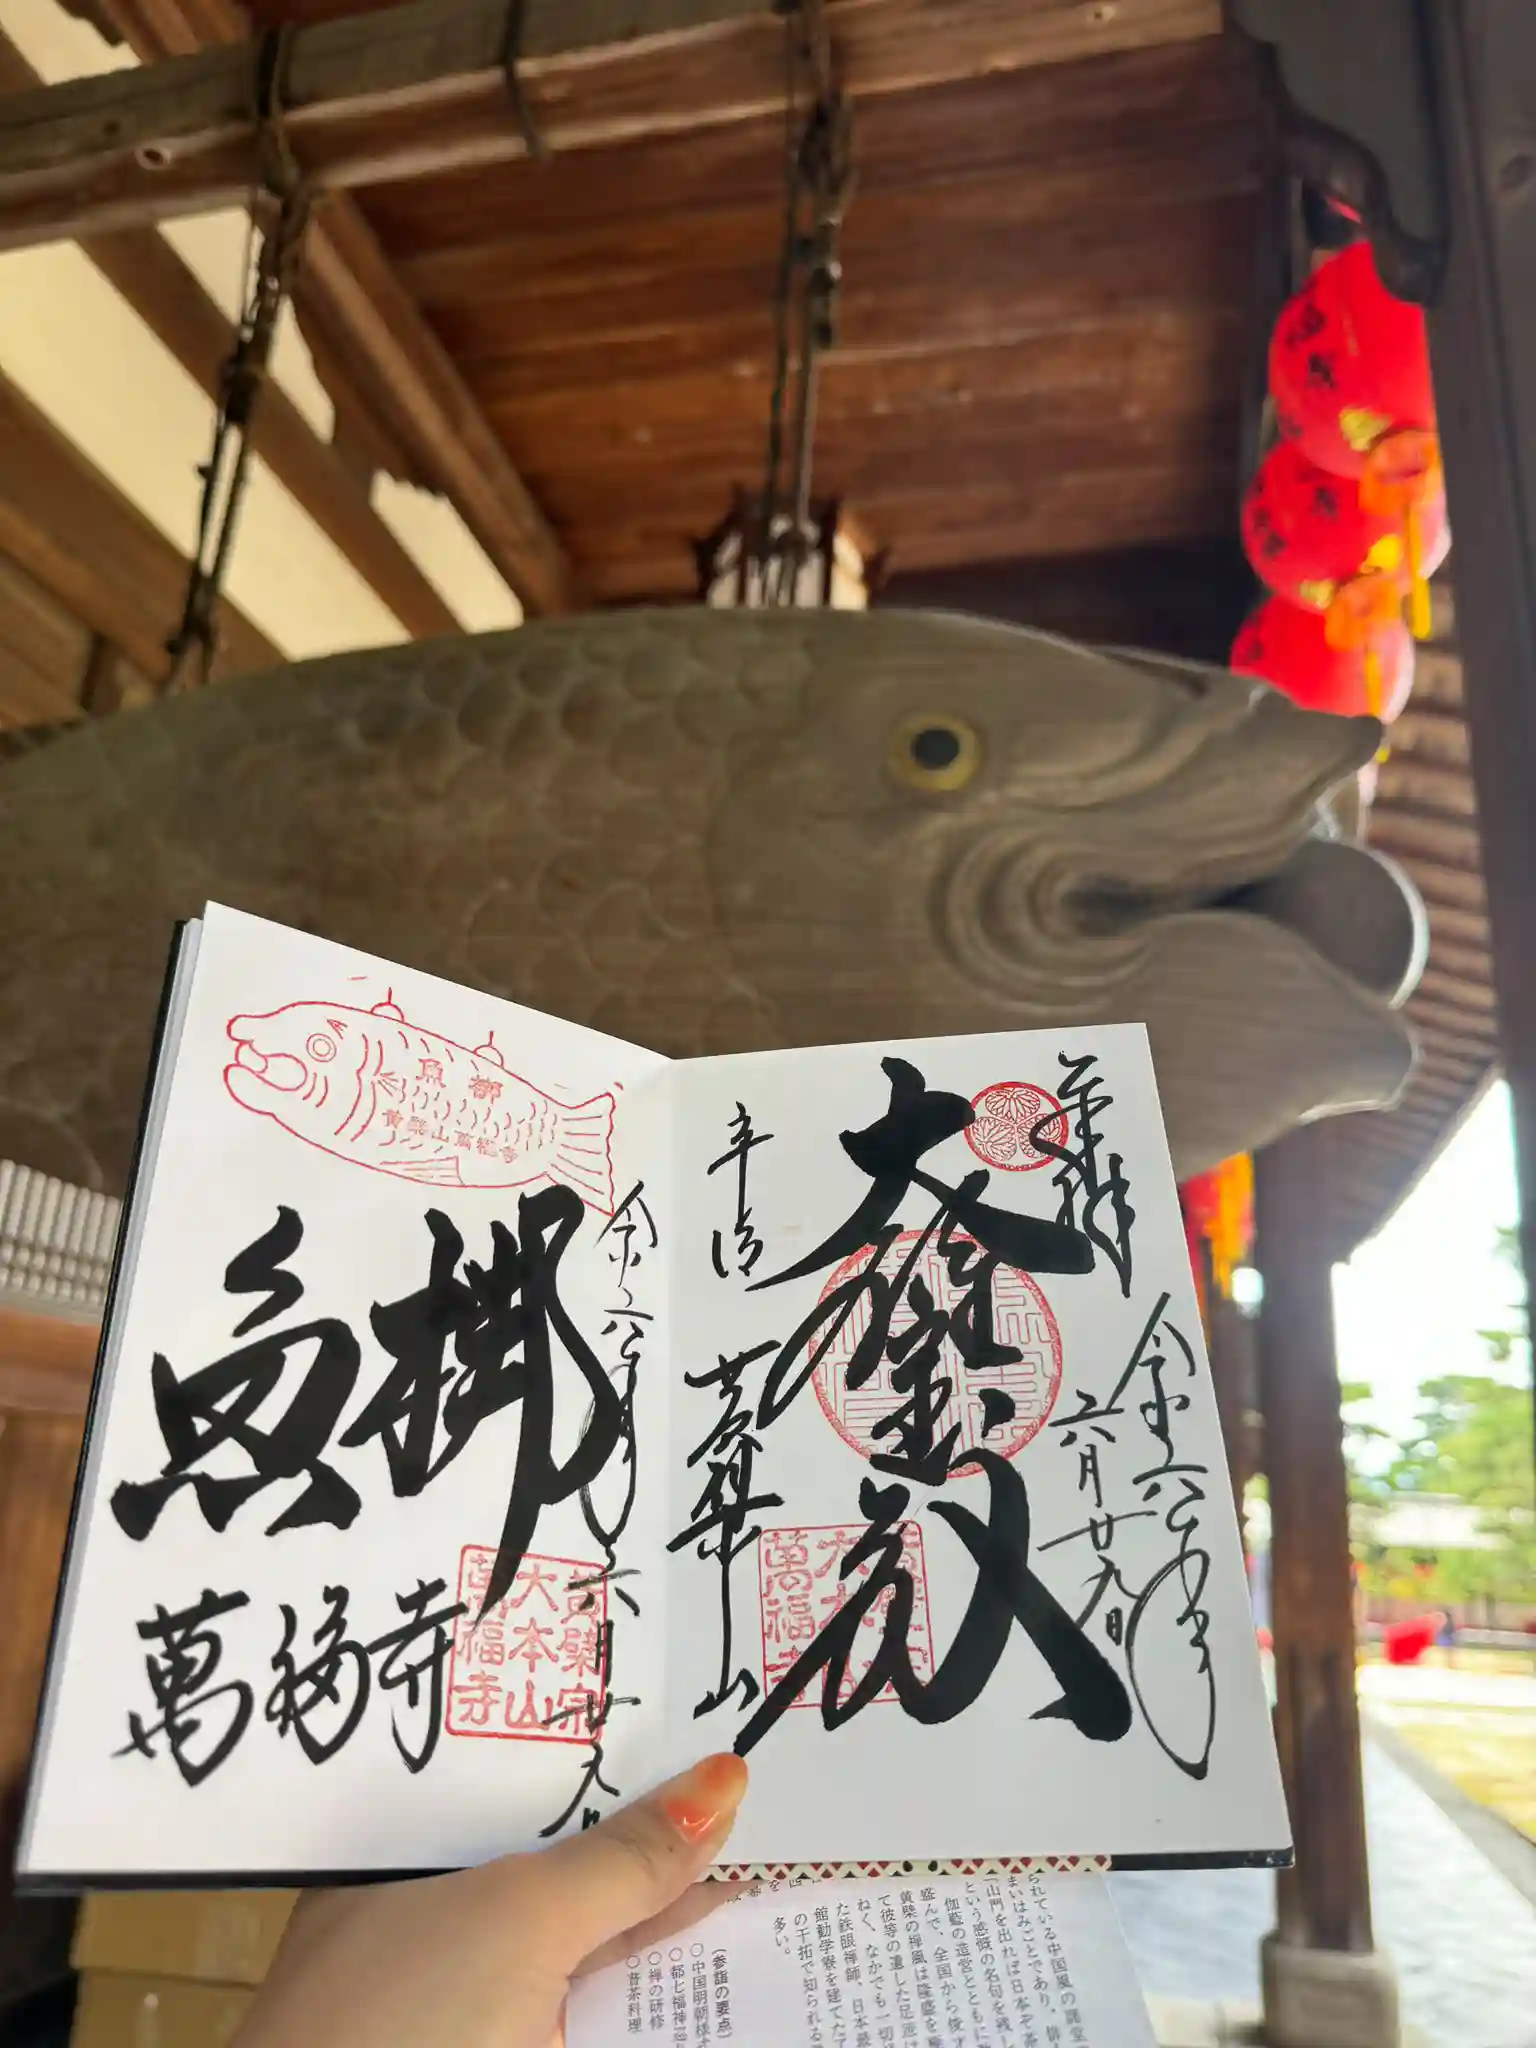 奉拝
令六年
六月廿九日
大雄宝殿
宇治
黄檗山
黄檗宗
大本山
萬福寺
令六年
六月廿九日
魚梆
黄檗山萬福寺
魚梆
萬福寺
黄檗宗
大本山
萬福寺
られている中国風の諸堂
まいはみごとであり、俳
「山門を出れば日本ぞ茶
という感慨の名句を残し
伽藍の造営とともに
盛んで、全国から俊才
黄檗の禅風は隆盛を
て彼等の遺した足迹は
ねく、なかでも一切
た鉄眼禅師、日本最
館勧学寮を建てた了
の干拓で知られる
多い。
(参詣の要点)
○中国明朝様
○都七福神
○禅の研修
○普茶料理